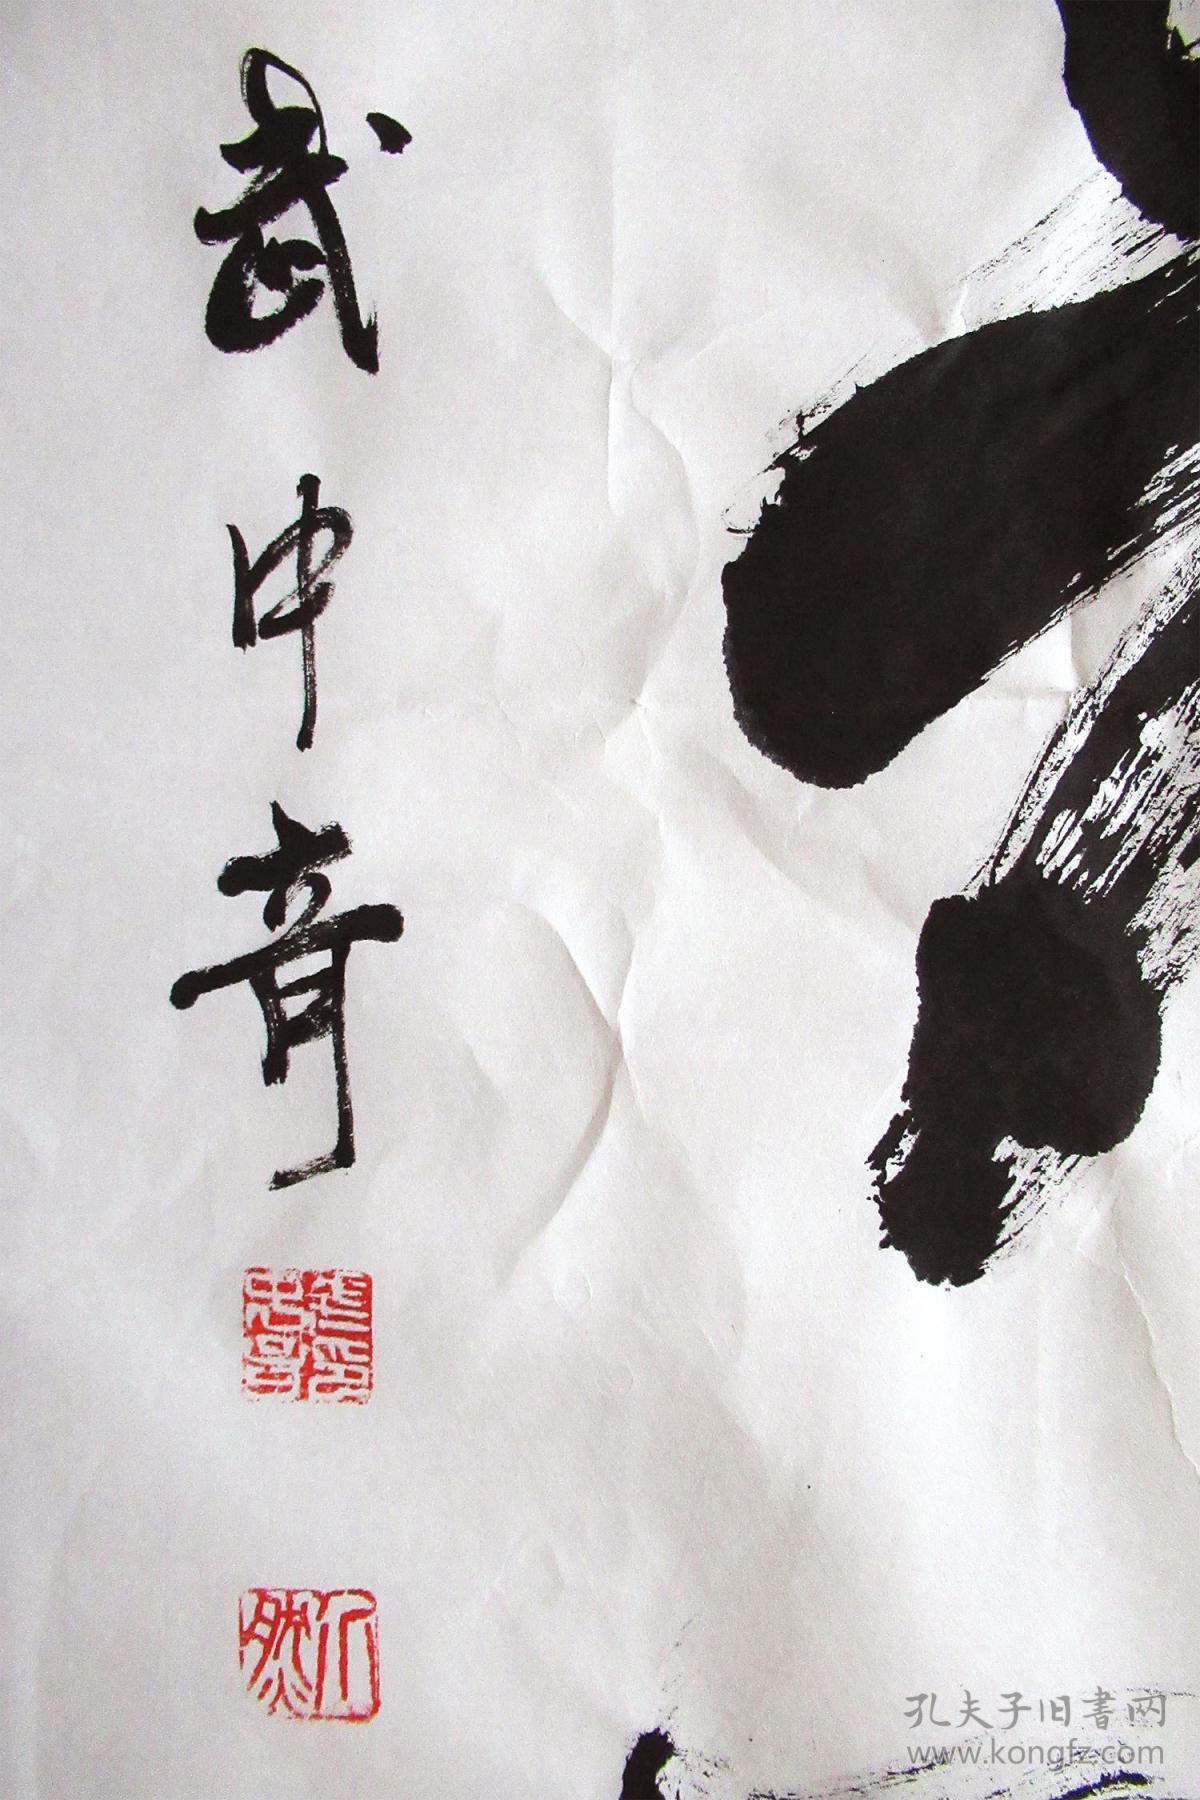 武中奇
武中奇印
孔夫子旧书网
www.kongfz.com